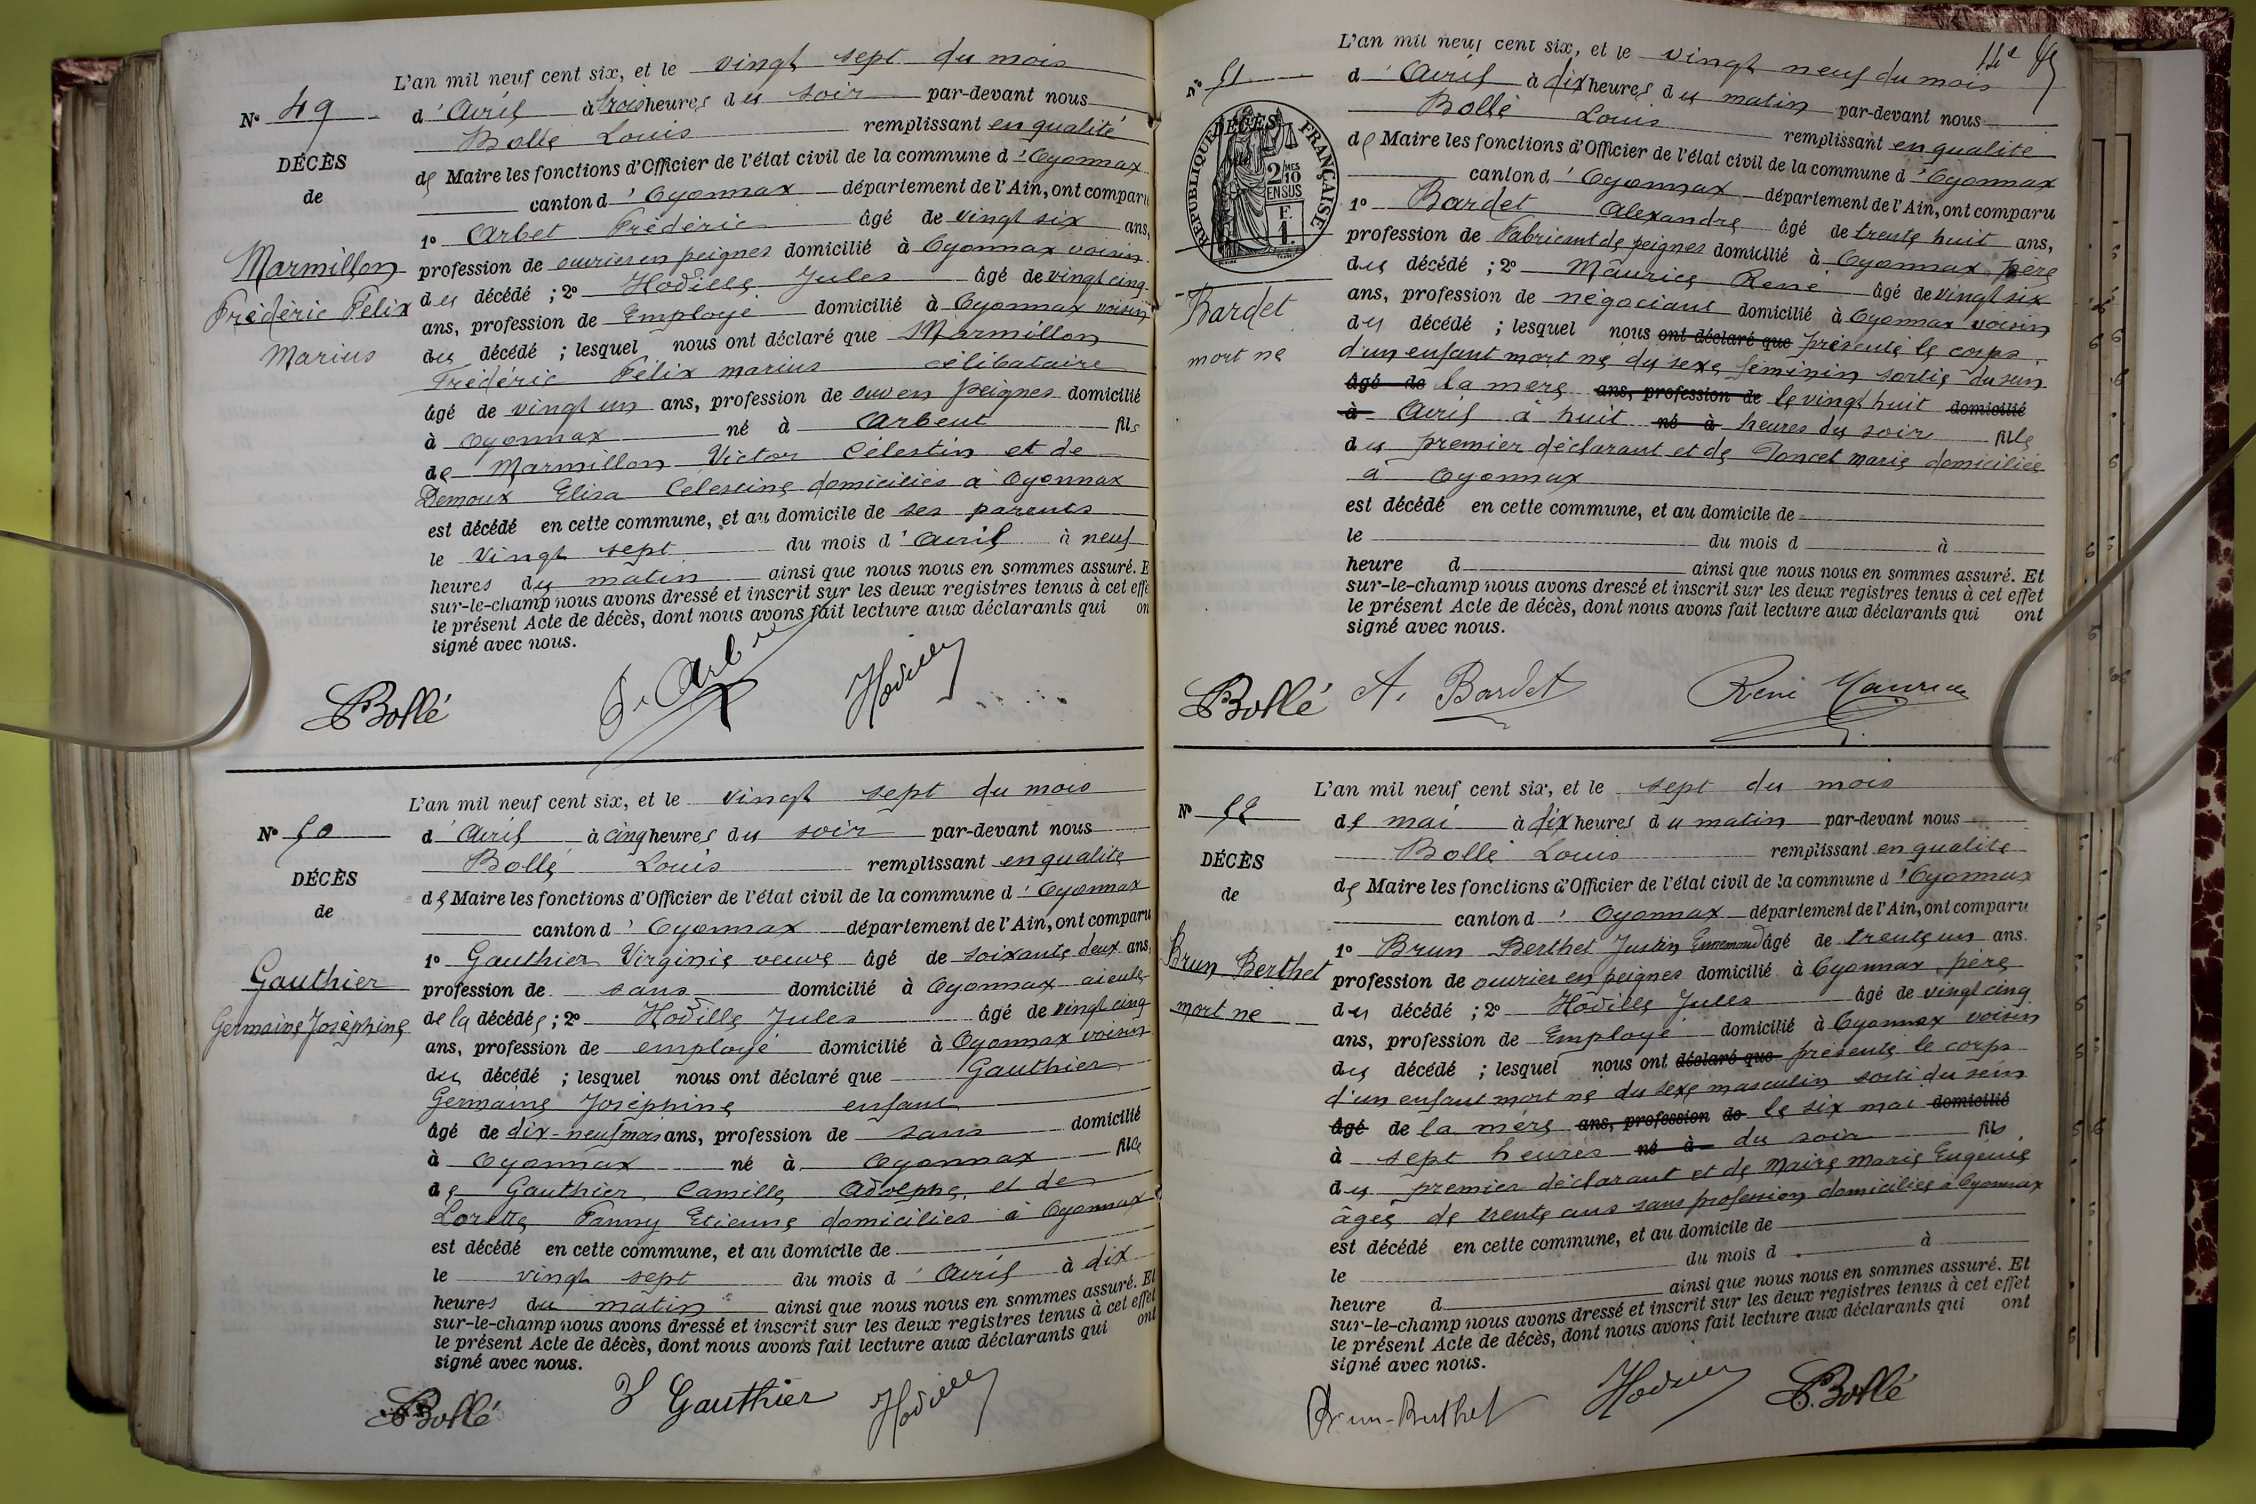 L'an mil neuf cent six, et le vingt sept du mois
N° 49
d'Avril à trois heures du soir par-devant nous
Bollé Louis remplissant en qualité
DÉCÈS
de Maire les fonctions d'Officier de l'état civil de la commune d'Oyonnax
de
canton d'Oyonnax département de l'Ain, ont comparu
1° Arbet Frédéric âgé de vingt six ans,
Marmillon
profession de ouvrier en peignes domicilié à Oyonnax voisin
du décédé ; 2° Hodille Jules âgé de vingt cinq
Frédéric Félix
ans, profession de Employé domicilié à Oyonnax voisin
Marius
du décédé ; lesquel nous ont déclaré que Marmillon
Frédéric Félix marius célibataire
âgé de vingt un ans, profession de ouv en peignes domicilié
à Oyonnax né à Arbent fils
de Marmillon Victor Célestin et de
Demoux Elisa Celestine domiciliés à Oyonnax
est décédé en cette commune, et au domicile de ses parents
le vingt sept du mois d'Avril à neuf
heures du matin ainsi que nous nous en sommes assuré. E
sur-le-champ nous avons dressé et inscrit sur les deux registres tenus à cet effe
le présent Acte de décès, dont nous avons fait lecture aux déclarants qui on
signé avec nous.
Bollé Hodille
L'an mil neuf cent six, et le vingt sept du mois
N° 50
d'Avril à cinq heures du soir par-devant nous
Bollé Louis remplissant en qualité
DÉCÈS
de Maire les fonctions d'Officier de l'état civil de la commune d'Oyonnax
de
canton d'Oyonnax département de l'Ain, ont comparu
1° Gauthier Virginie veuve âgé de soixante deux ans,
Gauthier
profession de sans domicilié à Oyonnax aieule
Germaine Joséphine
de la décédée ; 2° Hodille Jules âgé de vingt cinq
ans, profession de employé domicilié à Oyonnax voisin
du décédé ; lesquel nous ont déclaré que Gauthier
Germaine Joséphine enfant
âgé de dix-neuf mois ans, profession de sans domicilié
à Oyonnax né à Oyonnax fille
de Gauthier Camille Adolphe, et de
Lorette Fanny Etienne domiciliés à Oyonnax
est décédé en cette commune, et au domicile de
le vingt sept du mois d'Avril à dix
heures du matin ainsi que nous nous en sommes assuré. Et
sur-le-champ nous avons dressé et inscrit sur les deux registres tenus à cet effet
le présent Acte de décès, dont nous avons fait lecture aux déclarants qui ont
signé avec nous.
Bollé Gauthier Hodille
L'an mil neuf cent six, et le vingt neuf du mois
N° 51
d'Avril à dix heures du matin par-devant nous
Bollé Louis remplissant en qualité
DÉCÈS
RÉPUBLIQUE FRANÇAISE
2/10 EN SUS
F. 1.
de Maire les fonctions d'Officier de l'état civil de la commune d'Oyonnax
canton d'Oyonnax département de l'Ain, ont comparu
1° Bardet Alexandre âgé de trente huit ans,
profession de Fabricant de peignes domicilié à Oyonnax père
du décédé ; 2° Maurice René âgé de vingt six
Bardet
ans, profession de négociant domicilié à Oyonnax voisin
mort né
du décédé ; lesquel nous ont déclaré que présenté le corps
d'un enfant mort né du sexe féminin sortie du sein
âgé de la mère ans, profession de le vingt huit domicilié
à Avril à huit né à heures du soir fille
du premier déclarant et de Poncet marie domiciliée
à Oyonnax
est décédé en cette commune, et au domicile de
le du mois d à
heure d ainsi que nous nous en sommes assuré. Et
sur-le-champ nous avons dressé et inscrit sur les deux registres tenus à cet effet
le présent Acte de décès, dont nous avons fait lecture aux déclarants qui ont
signé avec nous.
Bollé A. Bardet René Maurice
L'an mil neuf cent six, et le sept du mois
N° 52
de mai à dix heures du matin par-devant nous
Bollé Louis remplissant en qualité
DÉCÈS
de Maire les fonctions d'Officier de l'état civil de la commune d'Oyonnax
de
canton d'Oyonnax département de l'Ain, ont comparu
1° Brun Berthet Justin âgé de trente un ans.
Brun Berthet
profession de ouvrier en peignes domicilié à Oyonnax père
mort né
du décédé ; 2° Hodille Jules âgé de vingt cinq
ans, profession de Employé domicilié à Oyonnax voisin
du décédé ; lesquel nous ont déclaré que présenté le corps
d'un enfant mort né du sexe masculin sorti du sein
âgé de la mère ans, profession de le six mai domicilié
à sept heures né à du soir fils
du premier déclarant et de Maire Marie Eugénie
âgée de trente ans sans profession domiciliée à Oyonnax
est décédé en cette commune, et au domicile de
le du mois d à
heure d ainsi que nous nous en sommes assuré. Et
sur-le-champ nous avons dressé et inscrit sur les deux registres tenus à cet effet
le présent Acte de décès, dont nous avons fait lecture aux déclarants qui ont
signé avec nous.
Brun-Berthet Hodille Bollé